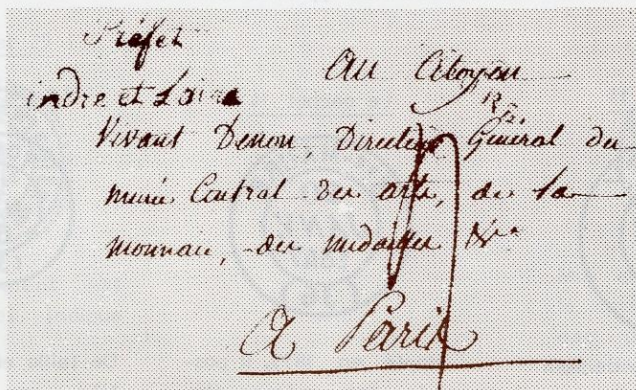 Préfet
indre et Loire
Au Citoyen
Vivant Denon, Directeur Général du
musée Central des arts, de la
monnaie, des médailles &a
A Paris